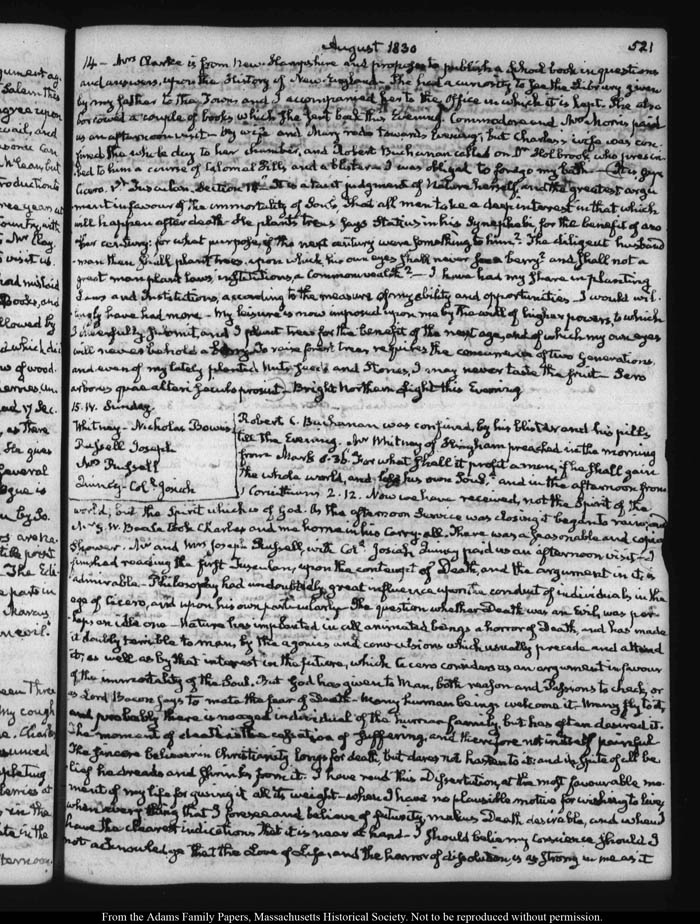 August 1830
521
14 — Mrs Clarke is from New Hampshire and proposes to publish a School book in questions
and answers, upon the History of New-England. She had a curiosity to see the Library given
by my father to the Town and I accompanied her to the Office in which it is kept. She also
borrowed a couple of books which she sent back this Evening. Commodore and Mrs Morris paid
us an afternoon visit — My wife and Mary rode towards Evening; but Charles's wife was con-
fined the whole day to her chamber, and Robert Buchanan called on Dr Holbrook, who prescri-
bed to him a course of Calomel Pills and a blister. I was obliged to forego my bath — It is, says
Cicero. 1st Tusculan. Section 14 — It is a tacit judgment of Nature herself, and the greatest argu-
ment in favour of the immortality of Souls that all men take a deep interest in that which
will happen after death. He plants trees says Statius in his Synephebi for the benefit of ano-
ther century: for what purpose, if the next century were something to him? The diligent husband-
man then shall plant trees, upon which his own eyes shall never see a berry? and shall not a
great man plant laws, institutions, a commonwealth? — I have had my share in planting
Laws and Institutions, according to the measure of my ability and opportunities — I would wil-
lingly have had more — My leisure is now imposed upon me by the will of higher powers, to which
I cheerfully submit, and I plant trees for the benefit of the next age, and of which my own eyes
will never behold a berry. To raise forest trees requires the concurrence of two Generations,
and even of my lately planted Nuts, Seeds and Stones, I may never taste the fruit — Sero
arbores quae alteri seculo prosint — Bright Northern Light this Evening
15. IV. Sunday.
Whitney — Nicholas Bowes
Russell Joseph
Mrs Russell
Quincy — Col. Josiah
Robert C. Buchanan was confined, by his blister and his pills
till the Evening. Mr Whitney of Hingham preached in the morning
from Mark 8.36. For what shall it profit a man, if he shall gain
the whole world, and lose his own Soul? and in the afternoon from
1 Corinthians 2.12. Now we have received, not the Spirit of the
world, but the Spirit which is of God. As the afternoon service was closing it began to rain; and
Mr G. W. Beale took Charles and me home in his Carry-all. There was a seasonable and copious
shower. Mr and Mrs Joseph Russell, with Col. Josiah Quincy paid us an afternoon visit — I
finished reading the first Tusculan, upon the contempt of Death, and the argument in it is
admirable. Philosophy had undoubtedly great influence upon the conduct of individuals in the
age of Cicero, and upon his own particularly — The question whether Death was an Evil, was per-
haps an idle one — Nature has implanted in all animated beings a horror of Death, and has made
it doubly terrible to man, by the agonies and convulsions which usually precede and attend
it, as well as by that interest in the future, which Cicero considers as an argument in favour
of the immortality of the Soul. But God has given to Man, both reason and Passions to check, or
as Lord Bacon says to mate the fear of Death — Many human beings welcome it — many fly to it,
and probably there is no aged individual of the human family, but has often desired it.
The moment of death is the cessation of suffering, and therefore not in itself painful
The sincere believer in Christianity longs for death, but dares not hasten to it; and in spite of all be-
lief he dreads and shrinks from it. I have read this Dissertation, at the most favourable mo-
ment of my life for giving it all its weight — when I have no plausible motive for wishing to live,
when every thing that I foresee and believe of futurity, makes Death desirable, and when I
have the clearest indications that it is near at hand — I should belie my conscience should I
not acknowledge that the Love of Life, and the horror of dissolution, is as strong in me as it
From the Adams Family Papers, Massachusetts Historical Society. Not to be reproduced without permission.